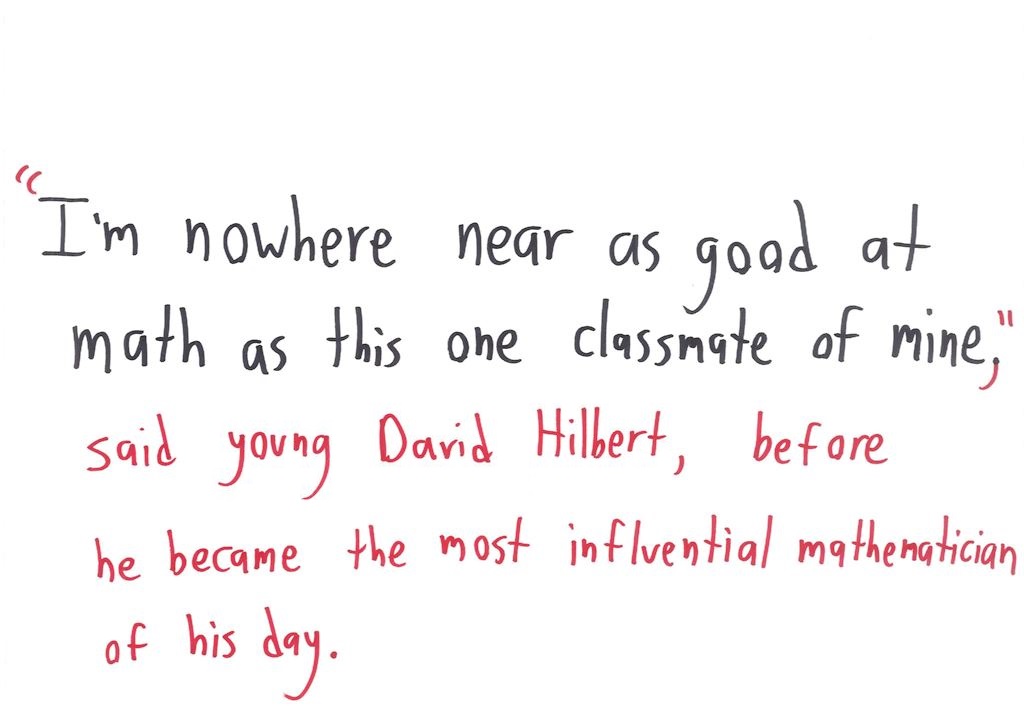 "I'm nowhere near as good at
math as this one classmate of mine,"
said young David Hilbert, before
he became the most influential mathematician
of his day.